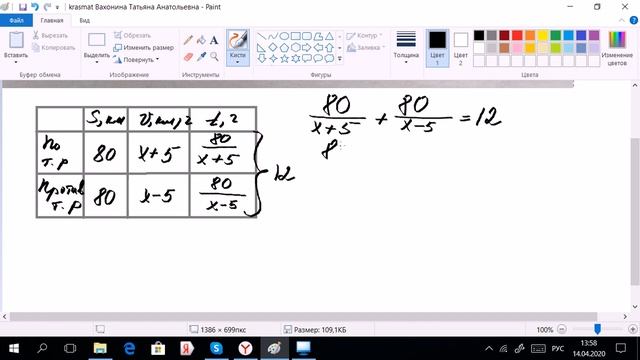 krasmat Вахонина Татьяна Анатольевна - Paint
Файл Главная Вид
Вставить
Вырезать
Копировать
Буфер обмена
Выделить
Обрезать
Изменить размер
Повернуть
Изображение
Инструменты
Кисти
Фигуры
Контур
Заливка
Толщина
Цвет 1
Цвет 2
Цвета
S, км V, км/ч t, ч
По т.р 80 x+5 80/(x+5)
Против т.р 80 x-5 80/(x-5)
12
80/(x+5) + 80/(x-5) = 12
8
1386 × 699пкс
Размер: 109,1КБ
100%
РУС
13:58
14.04.2020